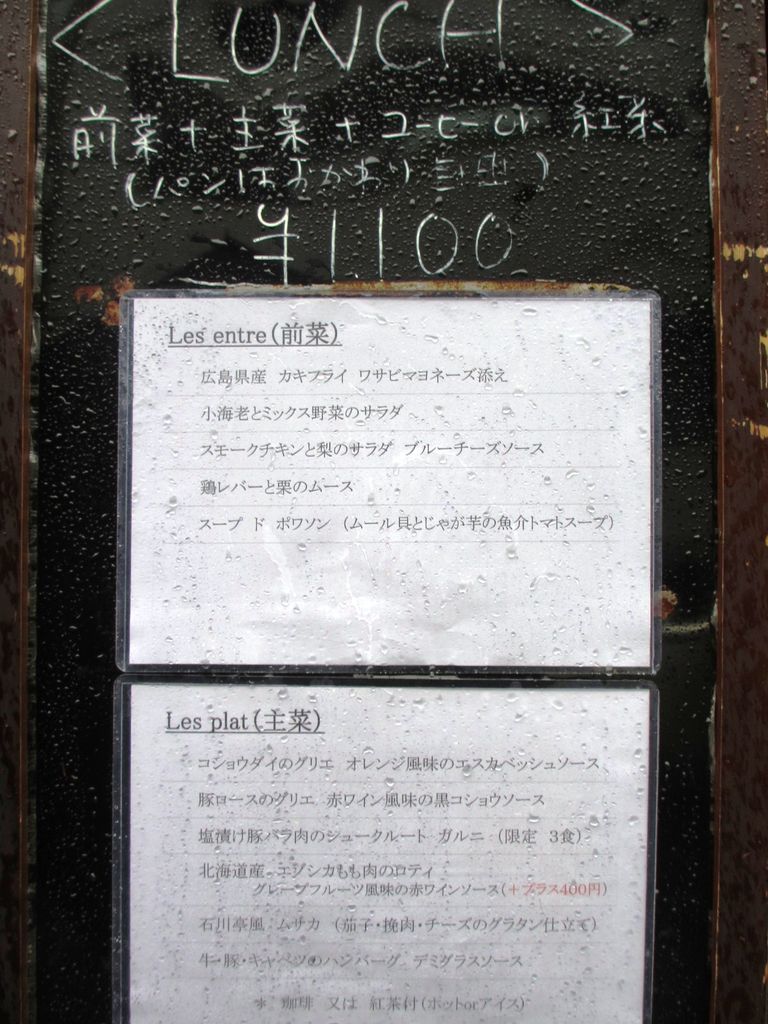 < LUNCH >
前菜 + 主菜 + コーヒー or 紅茶
(パンはおかわり自由)
¥1100
Les entre(前菜)
広島県産 カキフライ ワサビマヨネーズ添え
小海老とミックス野菜のサラダ
スモークチキンと梨のサラダ ブルーチーズソース
鶏レバーと栗のムース
スープ ド ポワソン (ムール貝とじゃが芋の魚介トマトスープ)
Les plat(主菜)
コショウダイのグリエ オレンジ風味のエスカベッシュソース
豚ロースのグリエ 赤ワイン風味の黒コショウソース
塩漬け豚バラ肉のシュークルート ガルニ (限定 3食)
北海道産 エゾシカもも肉のロティ
グレープフルーツ風味の赤ワインソース(+プラス400円)
石川亭風 ムサカ (茄子・挽肉・チーズのグラタン仕立て)
牛・豚・キャベツのハンバーグ デミグラスソース
* 珈琲 又は 紅茶付(ホットorアイス)